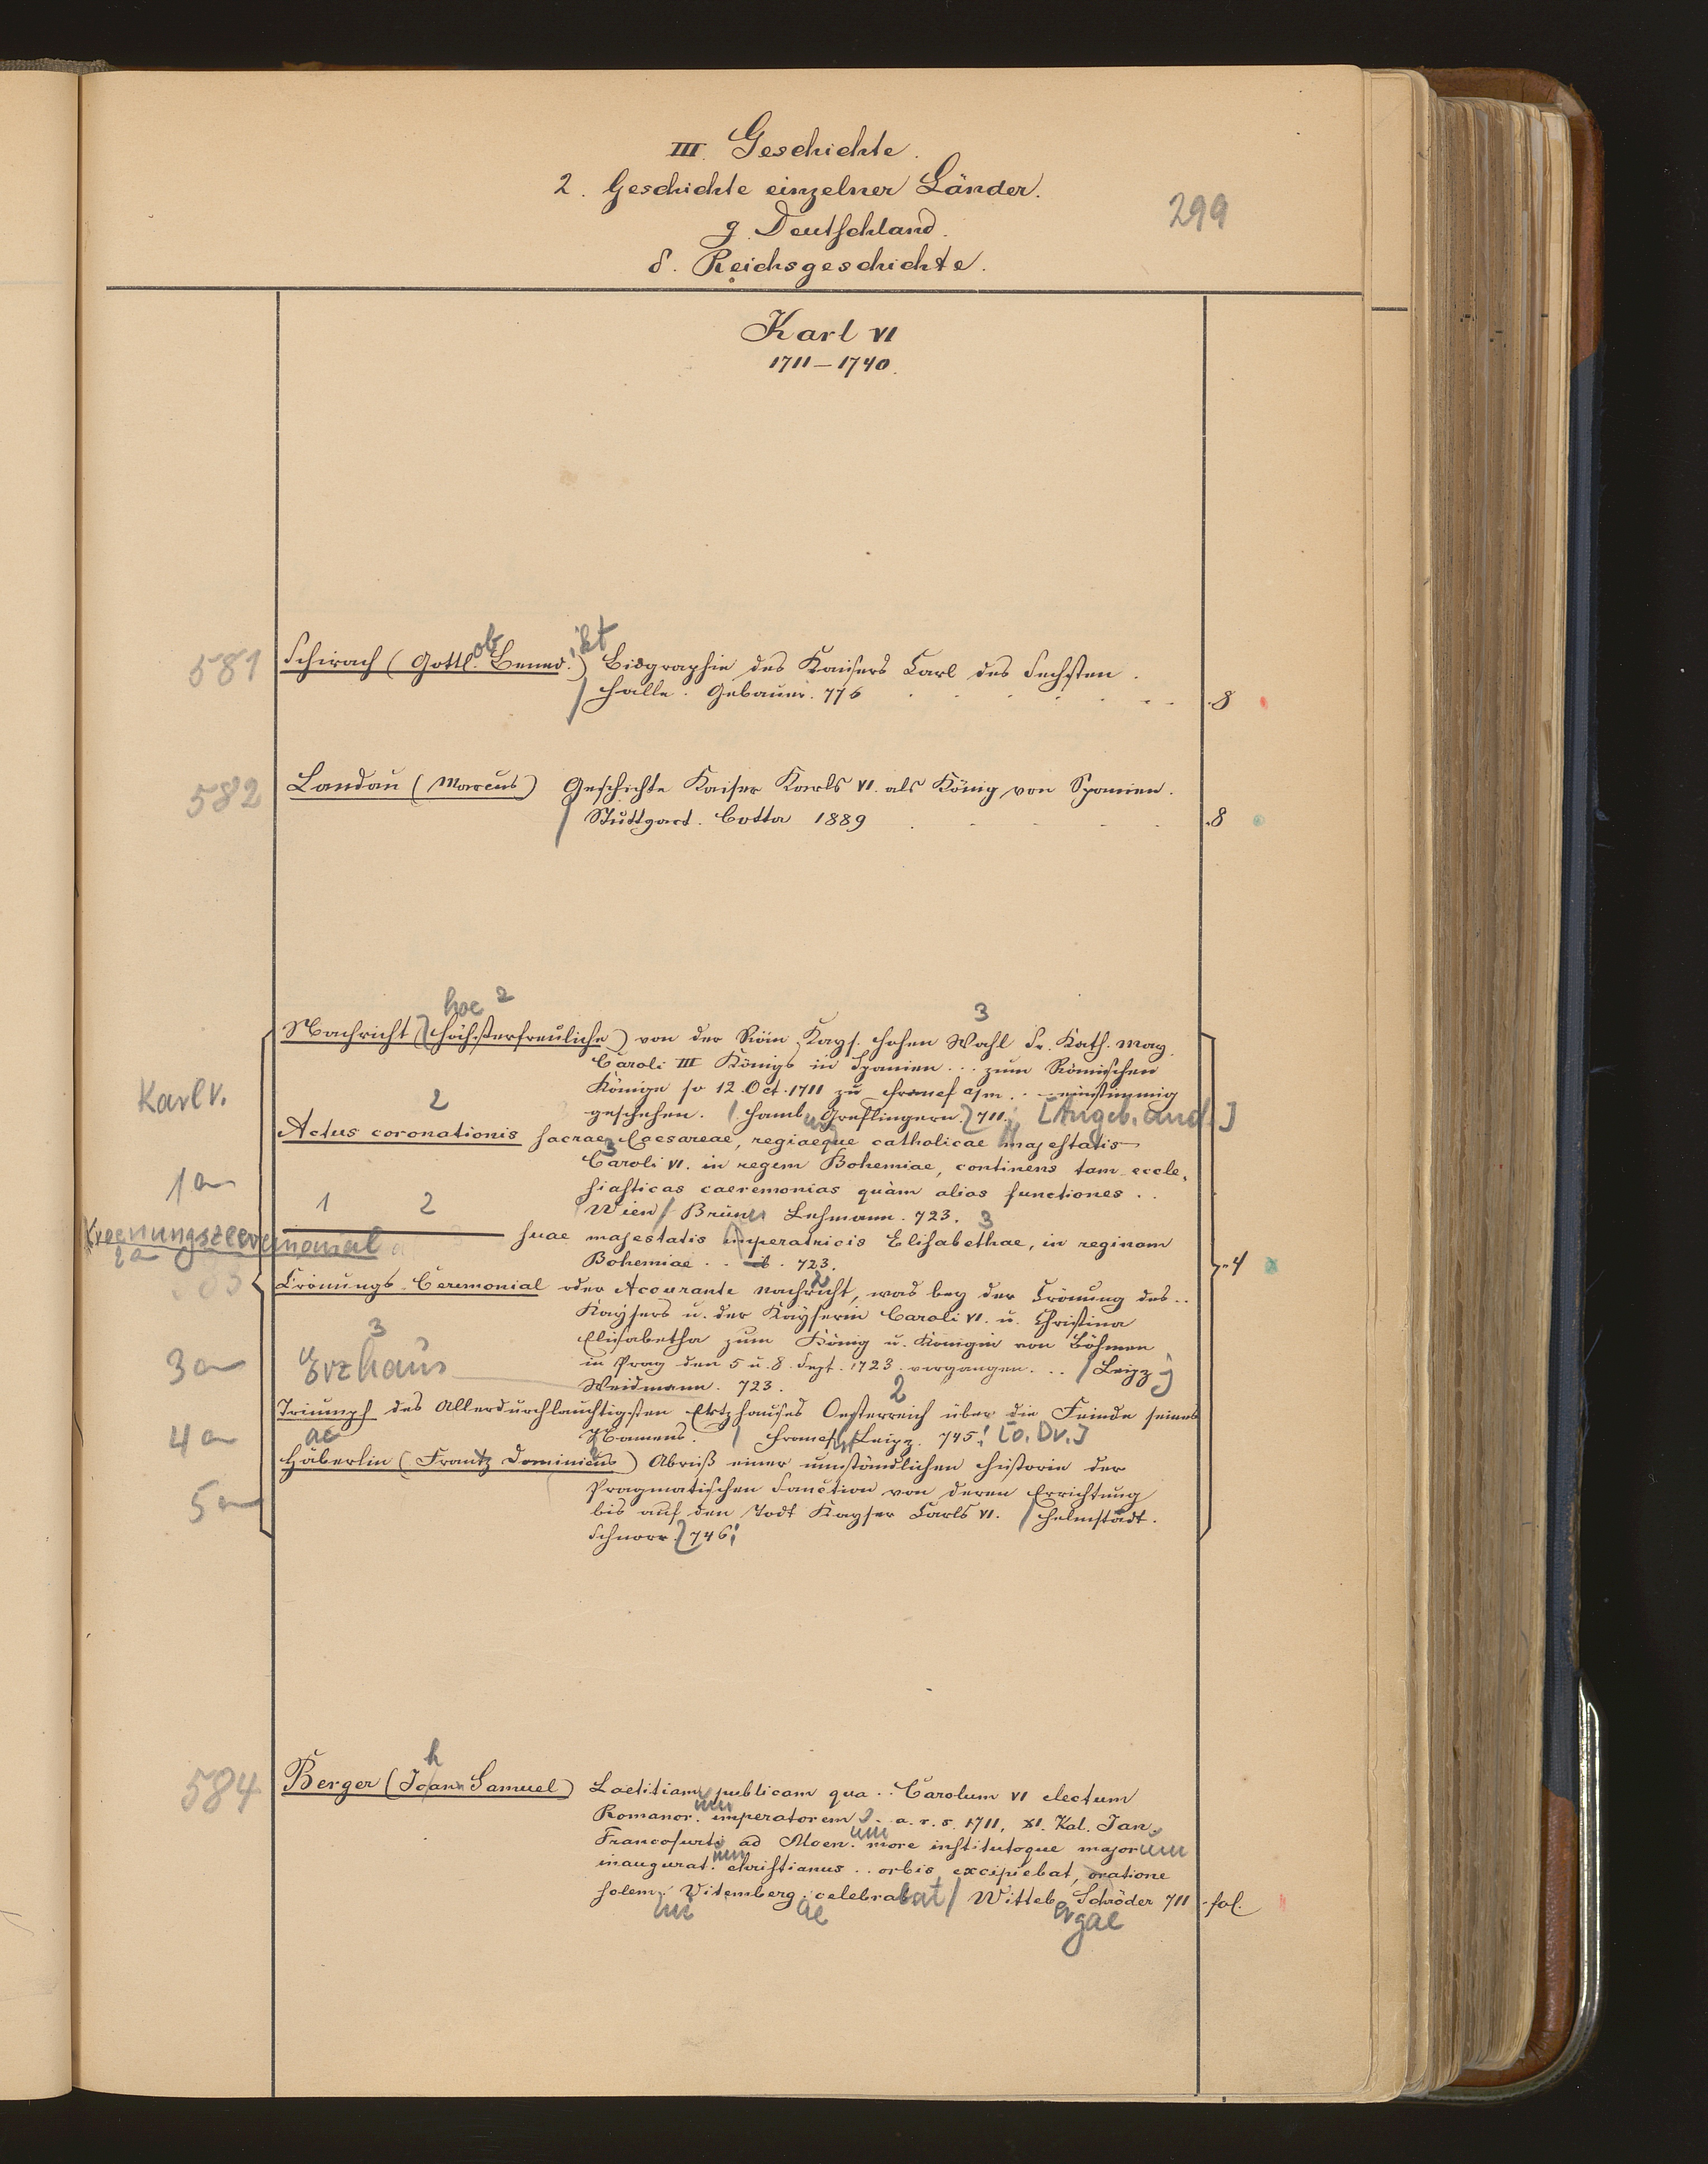 III. Geschichte.
2. Geschichte einzelner Länder.
g. Deutschland.
δ. Reichsgeschichte.
299
Karl VI
1711–1740.
581 Schirach (Gottl.ob Bened.ikt) Biographie des Kaisers Carl des Sechsten.
/ Halle. Gebauer. 776 . 8
582 Landau (Marcus) Geschichte Kaiser Karls VI. als König von Spanien.
/ Stuttgart. Cotta 1889 . 8
hoe 2 3
Nachricht (höchsterfreuliche) von der Röm. Kays. hohen Wahl Sr. Kath. May.
Caroli III Königs in Spanien ... zum Römischen
Karl V.
Könige so 12. Oct. 1711 zu Francf a/m. .. einstimmig
2
geschehen. / Hamb. Greflingern. 711. [Angeb. and.]
Actus coronationis sacrae Caesareae, regiaeque catholicae majestatis
3
Caroli VI. in regem Bohemiae, continens tam eccle-
1a
siasticas caeremonias quàm alias functiones ..
1 2
Wien / Brünn Lehmann. 723. 3
Kroenungszeremonial
——— suae majestatis imperatricis Elisabethae, in reginam
2a
Bohemiae .. ib. 723.
583
-4
Crönungs-Ceremonial oder Accurante Nachricht, was bey der Crönung des ..
2
Kaysers u. der Kayserin Caroli VI. u. Christina
3
Elisabetha zum König u. Königin von Böhmen
3a Erzhaus
in Prag den 5 u. 8. Sept. 1723. vorgangen. .. / Leipz
Weidmann. 723.
2
Triumpf des Allerdurchlauchtigsten Ertzhauses Oesterreich über die Feinde seines
4a ae
Namens. / Francf. Leipz. 745. [o. Dr.]
Häberlin (Frantz Dominicus) Abriß einer umständlichen Historie der
Pragmatischen Sanction von deren Errichtung
5a
bis auf den Todt Kayser Carls VI. / Helmstädt.
Schnorr. 746.
h
584 Berger (Joann Samuel) Laetitiam publicam qua .. Carolum VI electum
Romanor.um imperatorem .. a. r. s. 1711. XI. Kal. Jan.
Francofurti ad Moen.um more institutoque majorum
inaugurat.um christianus .. orbis excipiebat, oratione
solemni Vitembergae celebrabat / Witteb.ergae Schröder 711 - fol.